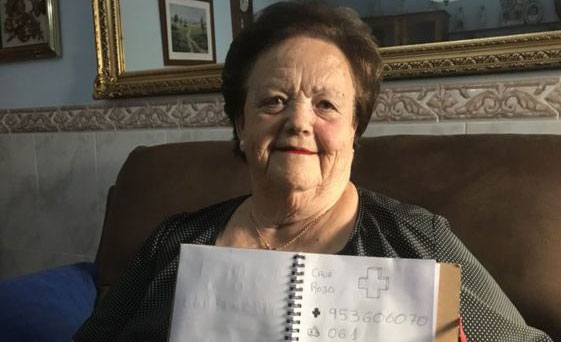 CRUZ
ROJA
953606070
061